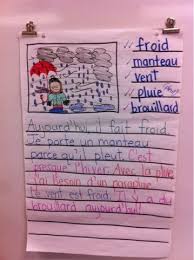 froid
manteau
vent
pluie
brouillard
Aujourd'hui, il fait froid.
Je porte un manteau
parce qu'il pleut. C'est
presque l'hiver. Avec la pluie
j'ai besoin d'un parapluie.
Le vent est froid. Il y a du
brouillard aujourd'hui!